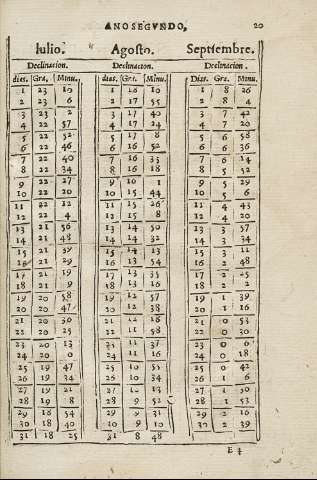 ANO SEGVNDO, 20
Iulio. Agosto. Septiembre.
Declinacion. Declinacion. Declinacion.
dias. Gra. Minu. dias. Gra. Minu. Dias. Gra. Minu.
1 23 10 1 18 10 1 8 26
2 23 6 2 17 55 2 8 4
3 23 2 3 17 40 3 7 42
4 22 57 4 17 24 4 7 20
5 22 52 5 17 8 5 6 58
6 22 46 6 16 52 6 6 36
7 22 40 7 16 35 7 6 14
8 22 34 8 16 18 8 5 52
9 22 27 9 16 1 9 5 29
10 22 20 10 15 44 10 5 6
11 22 12 11 15 26 11 4 43
12 22 4 12 15 8 12 4 20
13 21 56 13 14 50 13 3 57
14 21 48 14 14 32 14 3 34
15 21 39 15 14 13 15 3 11
16 21 29 16 13 54 16 2 48
17 21 19 17 13 35 17 2 25
18 21 9 18 13 16 18 2 2
19 20 58 19 12 57 19 1 39
20 20 47 20 12 38 20 1 16
21 20 36 21 12 18 21 0 53
22 20 25 22 11 58 22 0 30
23 20 13 23 11 37 23 0 6
24 20 0 24 11 16 24 0 18
25 19 47 25 10 55 25 0 42
26 19 34 26 10 34 26 1 6
27 19 21 27 10 13 27 1 30
28 19 8 28 9 52 28 1 53
29 18 54 29 9 31 29 2 16
30 18 40 30 9 10 30 2 39
31 18 25 31 8 48
E 4